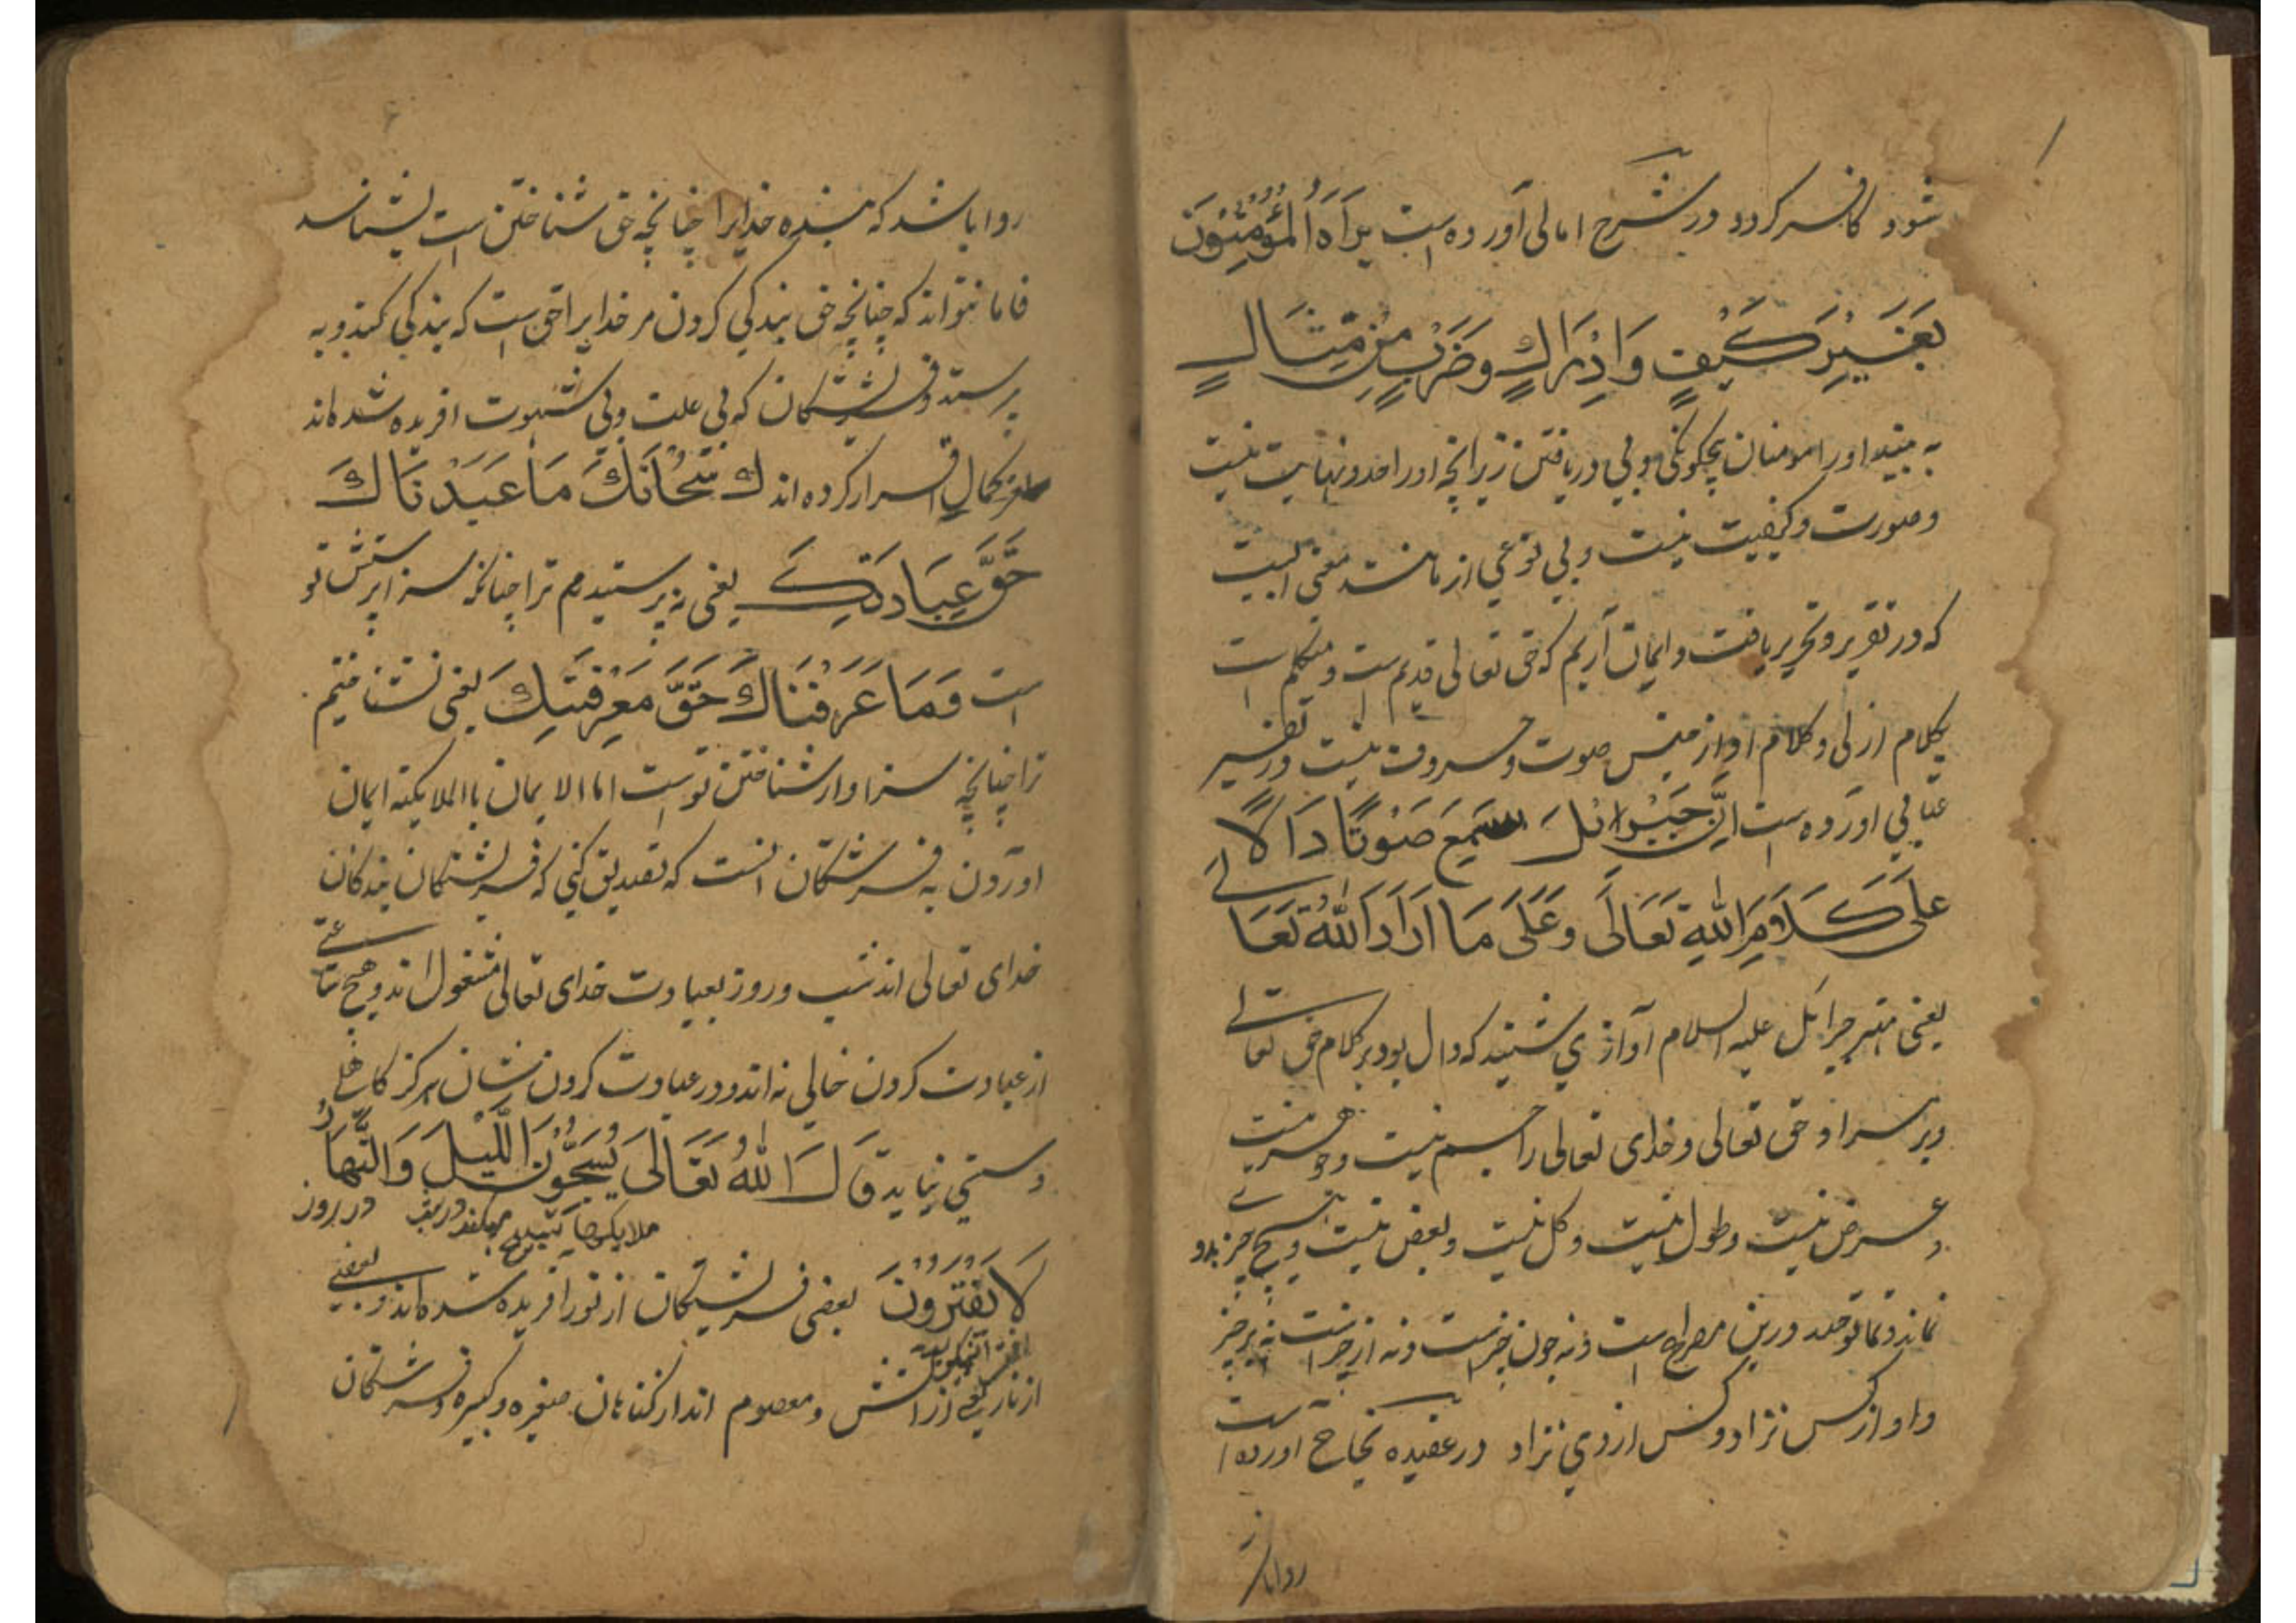 شود و کافر کردد در شرح امالی آورده است یَرَاهُ الْمُؤْمِنُونَ
بِغَیْرِ کَیْفٍ وَاِدْرَاكٍ وَضَرْبٍ مِنْ مِثَالٍ
به بیند اورا مومنان بیچکونکی و بی دریافتن زیرانچه اورا حد و نهایت نیست
و صورت و کیفیت نیست و بی نوعی از مانند معنی البیت
که در تقریر و تحریر یافت و ایمان آریم که حق تعالی قدیم است و متکلم است
بکلام ازلی و کلام او از جنس صوت و حروف نیست و در تفسیر
عتابی اورده است اِنَّ جَبْرائلَ سَمِعَ صَوْتًا دَالًا
عَلَی کَلَامِ اللهِ تَعَالَی وَعَلَی مَا اَرَادَ اللهُ تَعَالَی
یعنی مهتر جبرائل علیه السلام آوازی شنید که دال بود بر کلام حق تعالی
و بر سر او حق تعالی و خدای تعالی را جسم نیست و جوهر نیست
و عرض نیست و طول نیست و کل نیست و بعض نیست و هیچ چیز بدو
نماند و درین است و نه چون چیز است و نه از چیز است نه بر چیز
و او از کس نزاد و کس از وی نزاد در عقیده نجاح آورده است
روا باشد
روا باشد که بنده خدایرا چنانچه حق شناختن است بشناسد
فاما نتواند که چنانچه حق بندکی کردن مر خدایرا حق است که بندکی کند و به
پرستد و فرشتکان که بی علت و بی شهوت افریده شده اند
بکمال اقرار کرده اند که سُبْحَانَكَ مَا عَبَدْنَاكَ
حَقَّ عِبَادَتِكَ یعنی نه پرستیدم ترا چنانکه سزا پرستش تو
است وَمَا عَرَفْنَاكَ حَقَّ مَعْرِفَتِكَ یعنی نشناختیم
ترا چنانچه سزاوار شناختن توست اما الایمان باالملایکته ایمان
اوردن به فرشتکان انست که تصدیق کنی که فرشتکان بندکان
خدای تعالی اند شب و روز بعبادت خدای تعالی مشغول اند و هیچ ساعتی
از عبادت کردن خالی نه اند و در عبادت کردن نشان هرکز کاهلی
و سستی نیاید قَالَ اللهُ تَعَالَی یُسَبِّحُونَ اللَّیْلَ وَالنَّهَارَ
ملایکها تسبیح میکفند در شب در روز
لَا یَفْتُرُونَ بعضی فرشتکان از نور افریده شده اند و بعضی
از نار یعنی از اتش و معصوم اند از کناهان صغیره و کبیره و فرشتکان